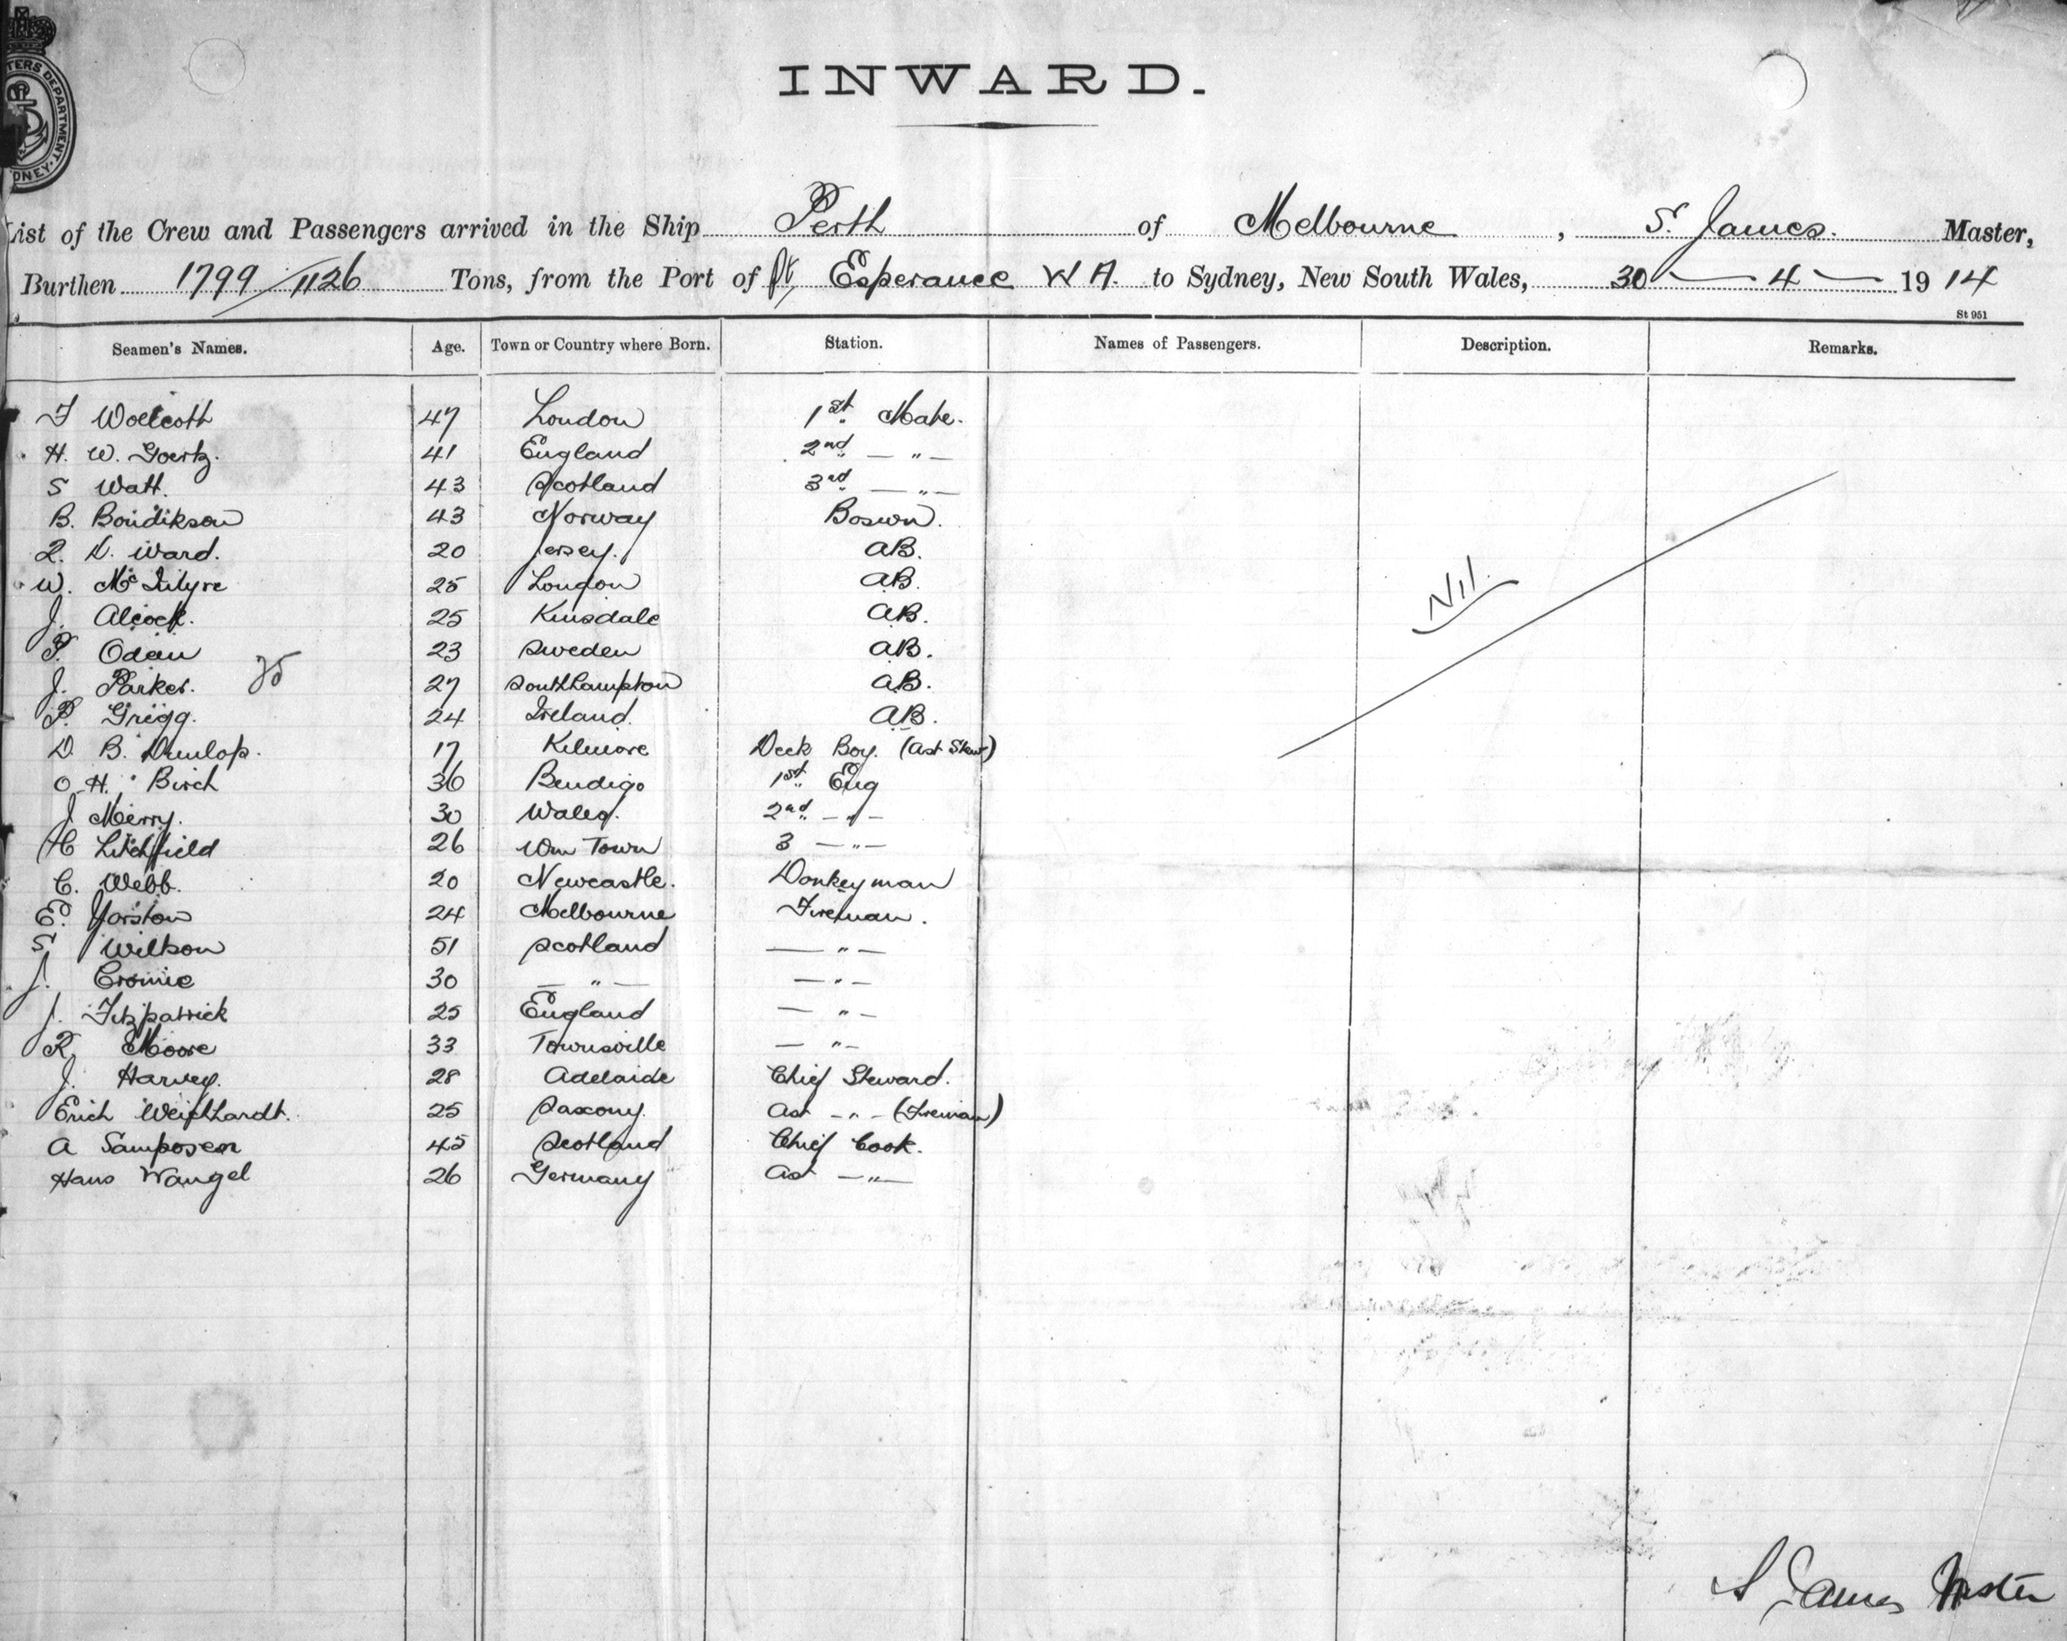 INWARD.
TERS DEPARTMENT.
DNEY.
List of the Crew and Passengers arrived in the Ship Perth of Melbourne, S. James. Master,
Burthen 1799/1126 Tons, from the Port of Pt Esperance W A. to Sydney, New South Wales, 30 — 4 — 1914
St 951
Seamen's Names. Age. Town or Country where Born. Station. Names of Passengers. Description. Remarks.
F Wollcott 47 London 1st Mate.
H. W. Goertz. 41 England 2nd — " —
S Watt. 43 Scotland 3rd — " —
B. Bondikson 43 Norway Boswn.
D. Ward. 20 Jersey. AB.
W. McIntyre 25 London AB.
J. Alcock. 25 Kinsdale AB.
P. Odein 23 Sweden AB.
25
J. Parker. 27 Southampton AB.
P. Grigg. 24 Ireland. AB.
D. B. Dunlop. 17 Kilmore Deck Boy. (Ast Stew)
O. H. Birch 36 Bendigo 1st Eng
J Merry. 30 Wales. 2nd — " —
H Litchfield 26 Wm Town 3 — " —
C. Webb. 20 Newcastle. Donkeyman
E. Yorston 24 Melbourne Fireman.
S Wilkson 51 Scotland — " —
J. Cromie 30 — " — — " —
J. Fitzpatrick 25 England — " —
R Moore 33 Townsville — " —
J. Harvey. 28 Adelaide Chief Steward.
Erich Weichhardt. 25 Saxony. Ast — " — (Fireman)
A Samposen 45 Scotland Chief Cook.
Hans Wangel 26 Germany Ast — " —
Nil.
S James Master